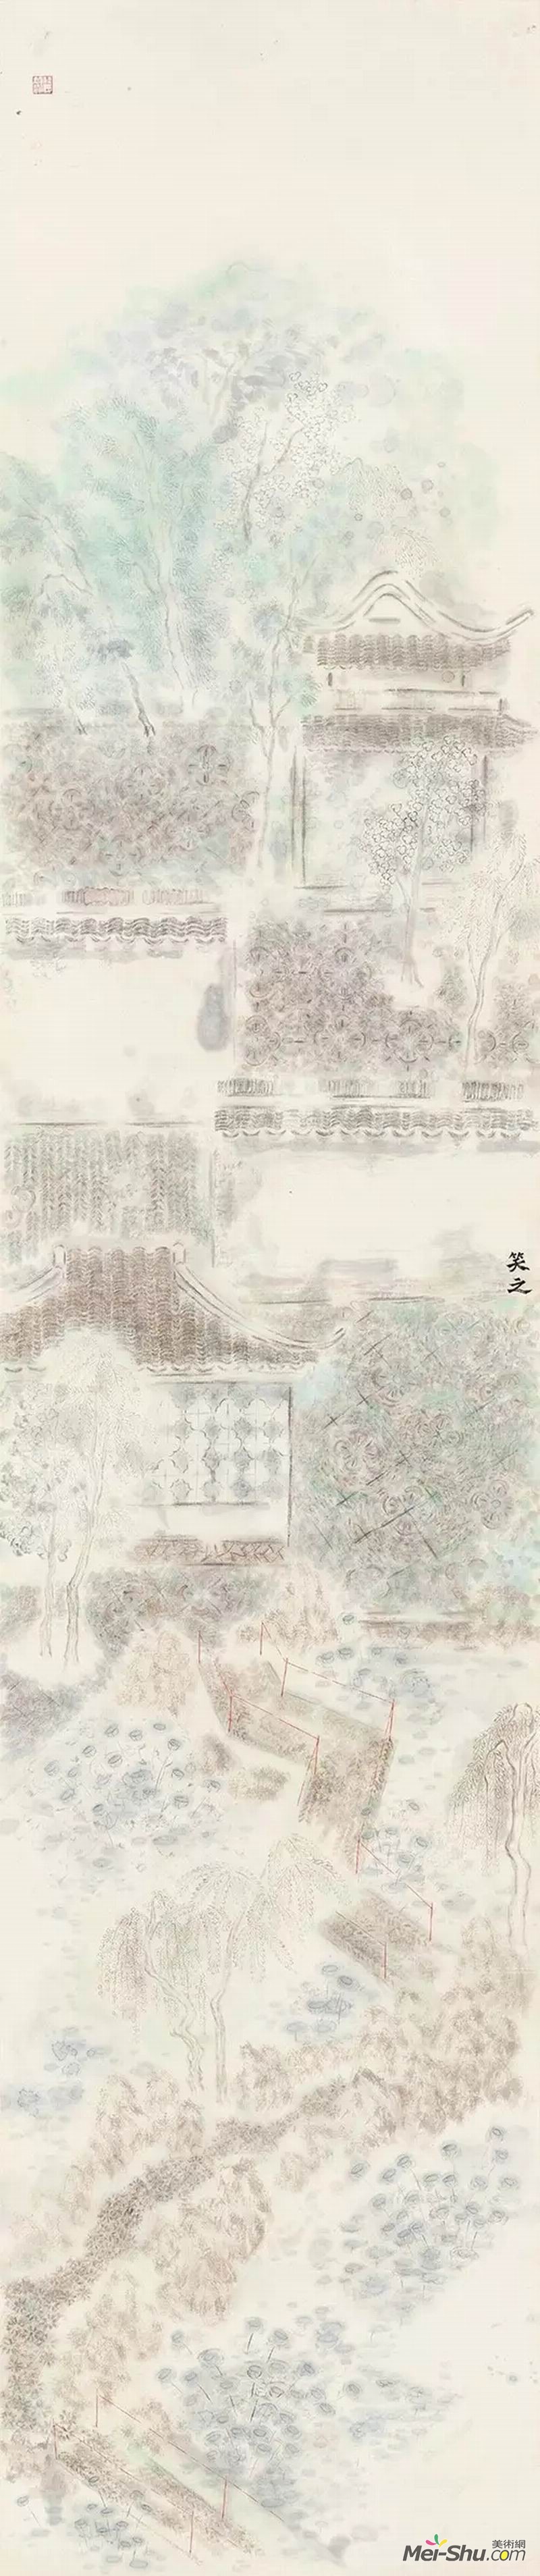 笑之
美術網
Mei-Shu.com